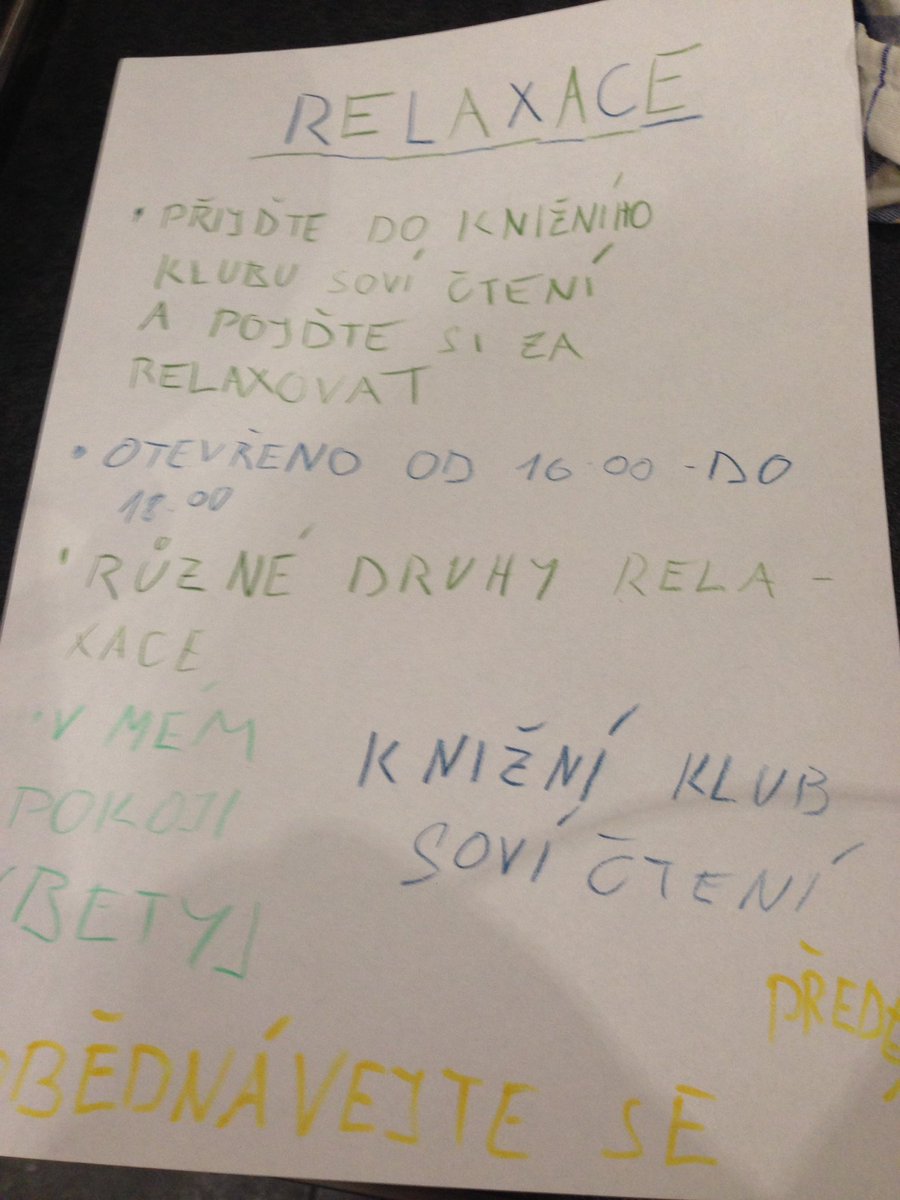 RELAXACE
• PŘIJĎTE DO KNIŽNÍHO
KLUBU SOVÍ ČTENÍ
A POJĎTE SI ZA
RELAXOVAT
• OTEVŘENO OD 16.00 - DO
18.00
• RŮZNÉ DRUHY RELA-
XACE
• V MÉM
POKOJI
(BETY)
KNIŽNÍ KLUB
SOVÍ ČTENÍ
OBĚDNÁVEJTE SE